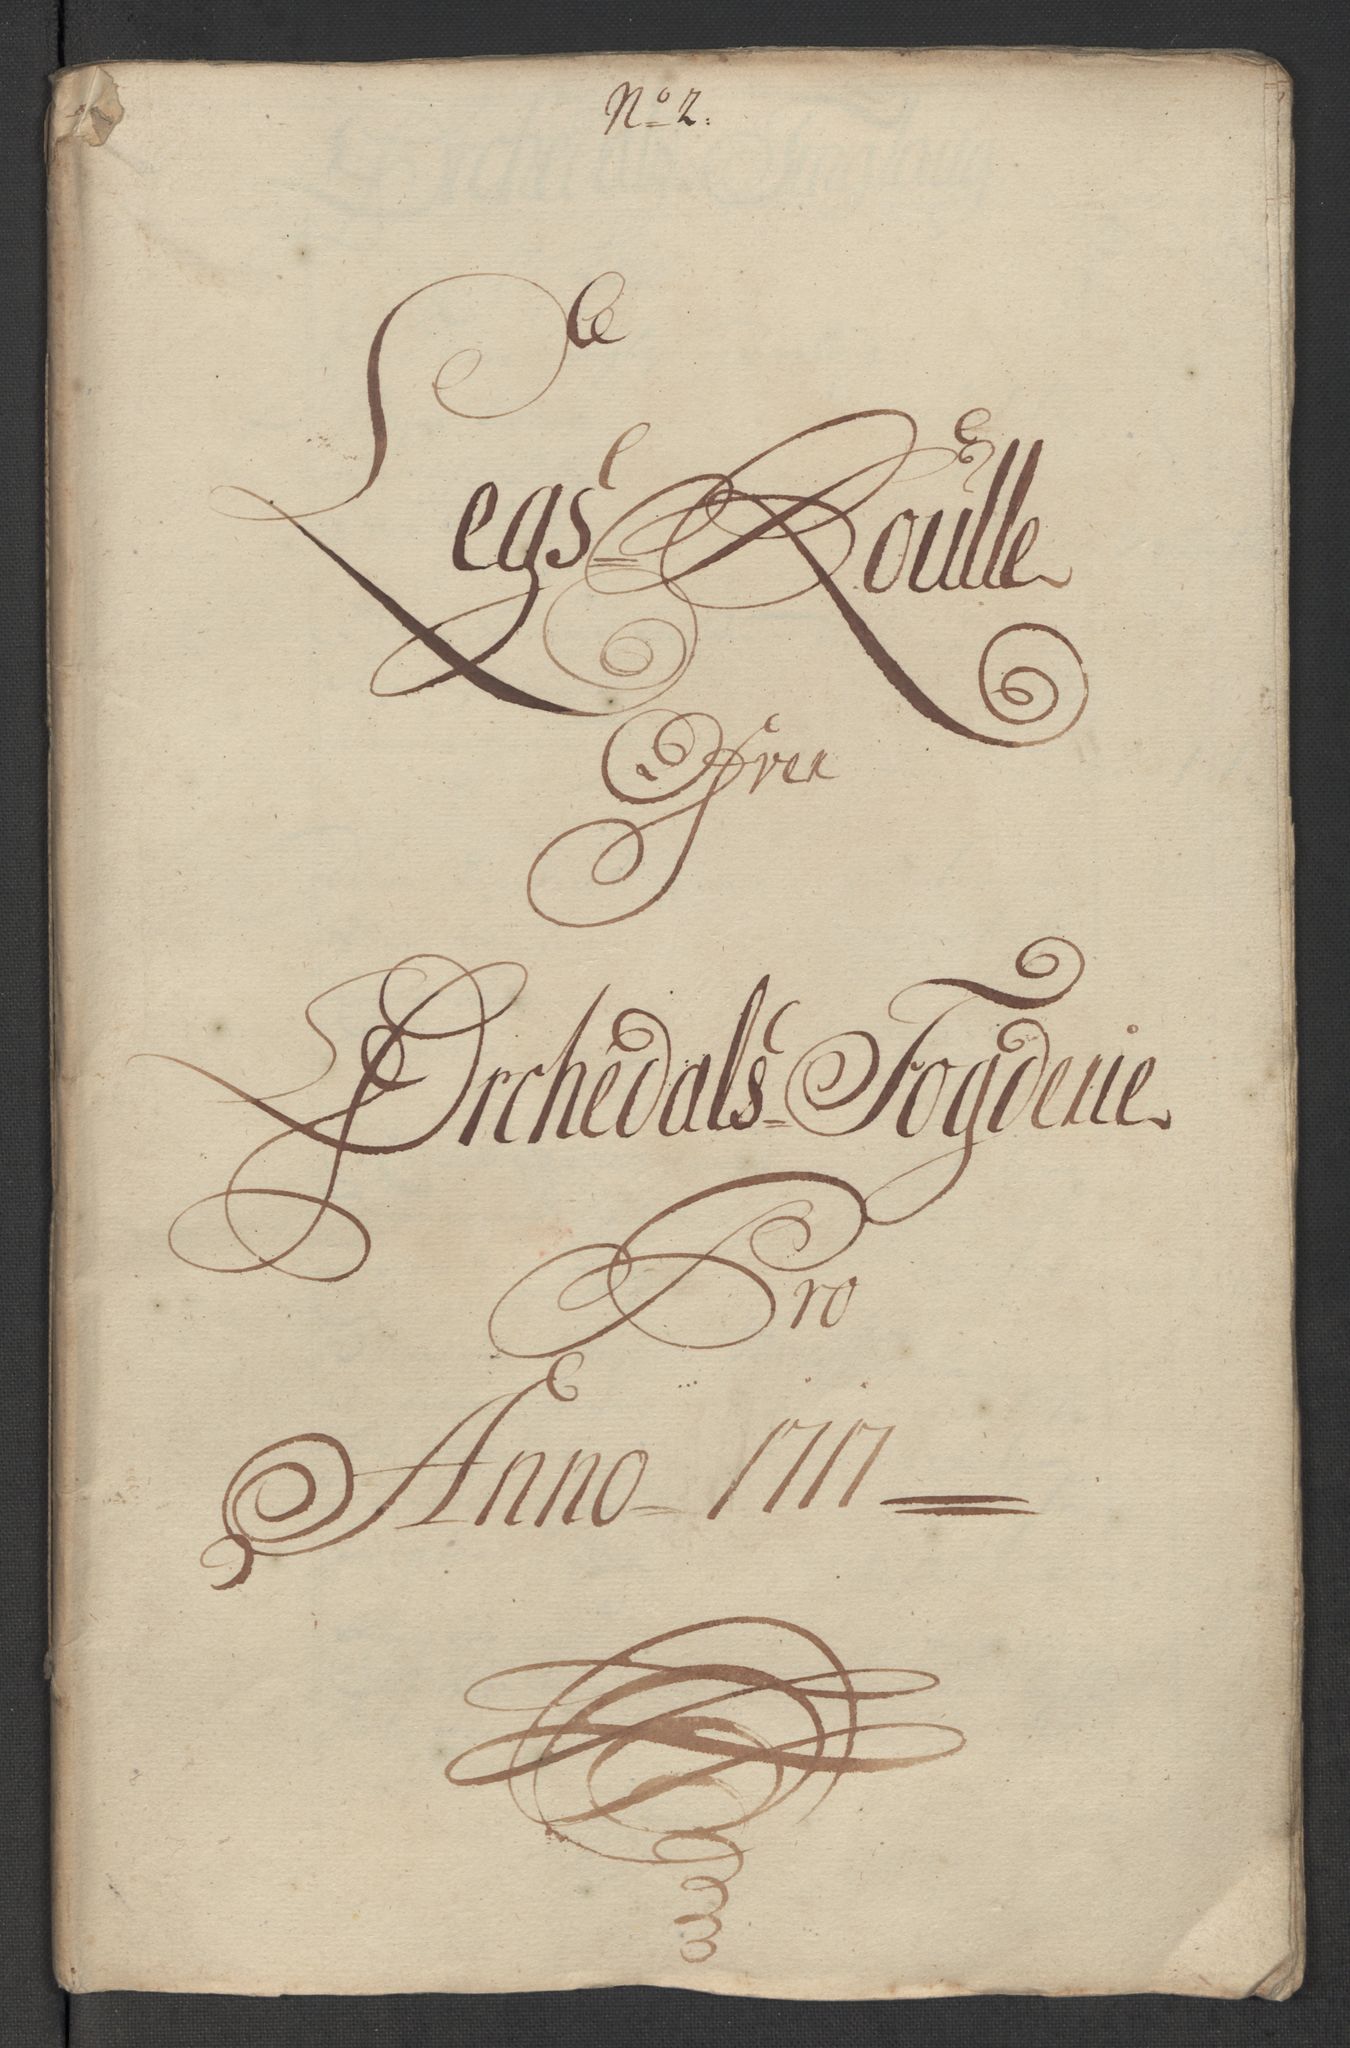 No 2.
Legs Roulle
Over
Orchedals Fogderie
Pro
Anno 1717